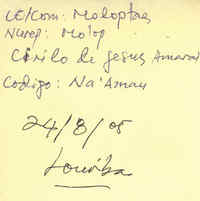 CE/Com: Moloptas
Nurep: Mo'op
Cirilo de Jesus Amaral
Codigo: Na'Aman
24/8/05
Louriba